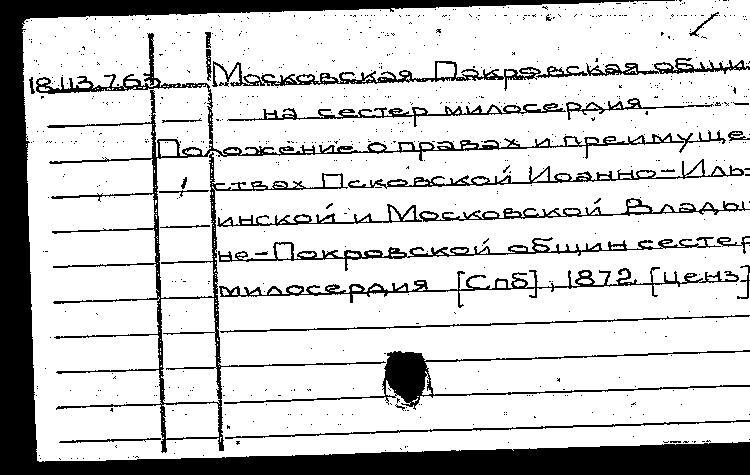 18.113.7.63 Московская Покровская общи
на сестер милосердия.
Положение о правах и преимуще
ствах Псковской Иоанно-Иль-
инской и Московской Влады
не-Покровской общин сестер
милосердия [Спб], 1872. [ценз]